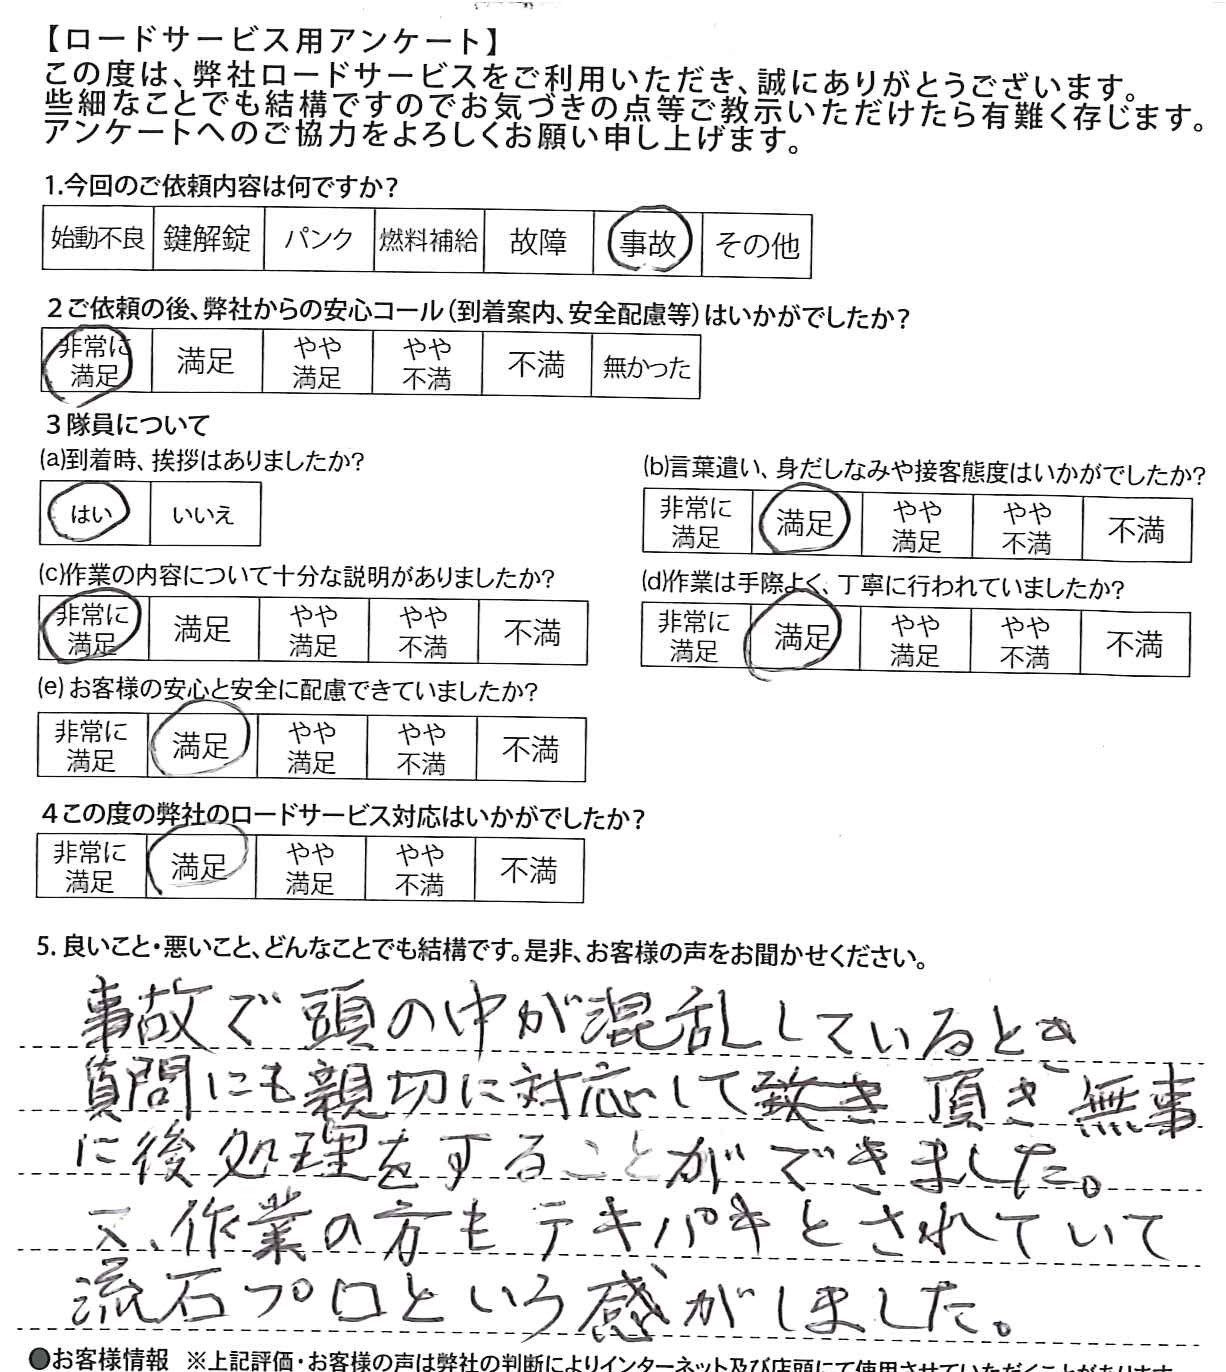 【ロードサービス用アンケート】
この度は、弊社ロードサービスをご利用いただき、誠にありがとうございます。
些細なことでも結構ですのでお気づきの点等ご教示いただけたら有難く存じます。
アンケートへのご協力をよろしくお願い申し上げます。
1.今回のご依頼内容は何ですか?
始動不良 鍵解錠 パンク 燃料補給 故障 事故 その他
2ご依頼の後、弊社からの安心コール(到着案内、安全配慮等)はいかがでしたか?
非常に満足 満足 やや満足 やや不満 不満 無かった
3隊員について
(a)到着時、挨拶はありましたか?
はい いいえ
(b)言葉遣い、身だしなみや接客態度はいかがでしたか?
非常に満足 満足 やや満足 やや不満 不満
(c)作業の内容について十分な説明がありましたか?
非常に満足 満足 やや満足 やや不満 不満
(d)作業は手際よく、丁寧に行われていましたか?
非常に満足 満足 やや満足 やや不満 不満
(e)お客様の安心と安全に配慮できていましたか?
非常に満足 満足 やや満足 やや不満 不満
4この度の弊社のロードサービス対応はいかがでしたか?
非常に満足 満足 やや満足 やや不満 不満
5.良いこと・悪いこと、どんなことでも結構です。是非、お客様の声をお聞かせください。
事故で頭の中が混乱しているとき
質問にも親切に対応して頂き無事
に後処理をすることができました。
又、作業の方もテキパキとされていて
流石プロという感がしました。
●お客様情報 ※上記評価・お客様の声は弊社の判断によりインターネット及び店頭にて使用させていただくことがあります